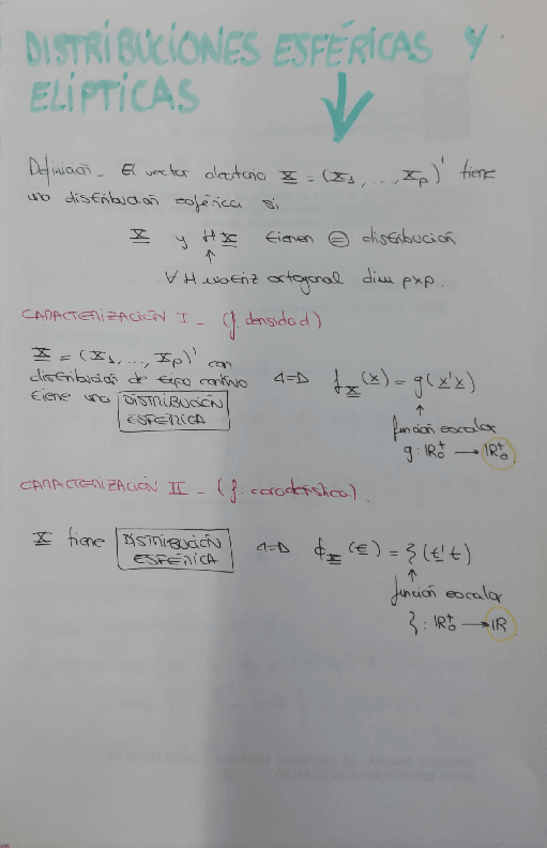 DISTRIBUCIONES ESFÉRICAS Y
ELÍPTICAS
Definición - El vector aleatorio X = (X1, ..., Xp)' tiene
una distribución esférica si
X y HX tienen = distribución
↑
∀ H matriz ortogonal dim pxp.
CARACTERIZACIÓN I - (f. densidad)
X = (X1, ..., Xp)' con
distribución de tipo continuo
tiene una DISTRIBUCIÓN
ESFÉRICA
⇔ fX(x) = g(x'x)
↑
función escalar
g: IR0+ → IR0+
CARACTERIZACIÓN II - (f. característica).
X tiene DISTRIBUCIÓN
ESFÉRICA
⇔ ϕX(t) = ξ(t't)
↑
función escalar
ξ: IR0+ → IR